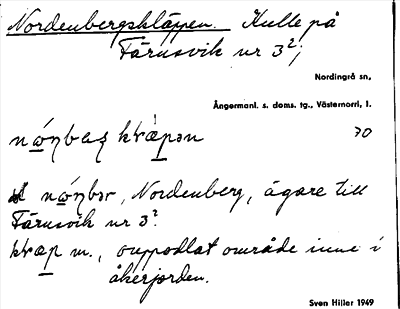 Nordenbergskläppen. Kulle på
Färusvik nr 3²;
Nordingrå sn,
Ångermanl. s. doms. tg., Västernorrl. l.
30
Nordenberg, ägare till
Färusvik nr 3².
m., ouppodlat område inne i
åkerjorden.
Sven Hiller 1949